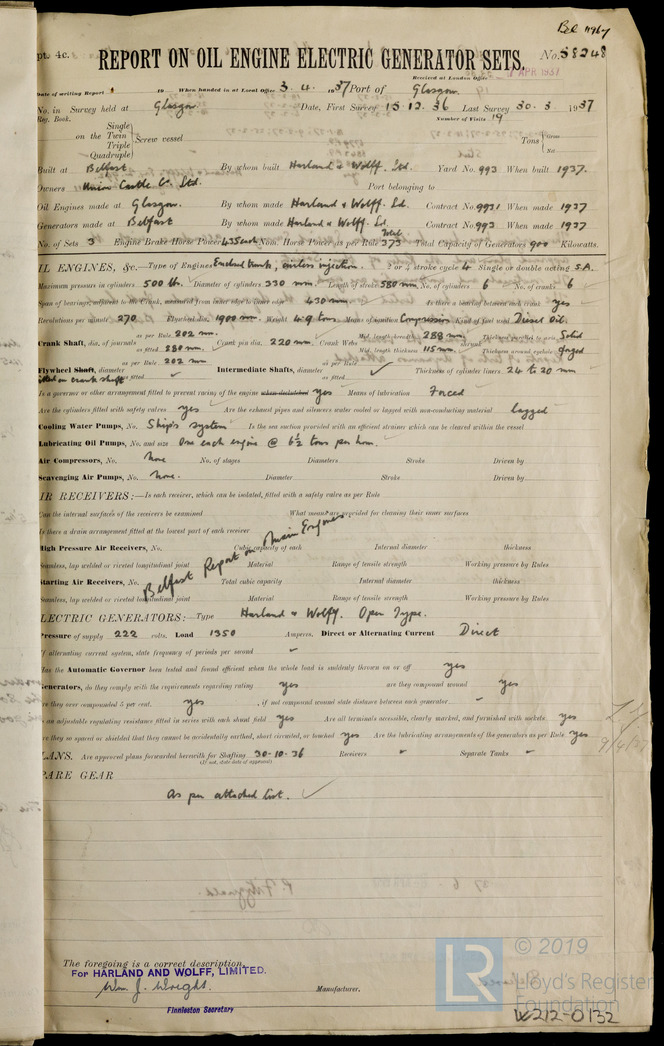 Bel 11967
pt. 4c. REPORT ON OIL ENGINE ELECTRIC GENERATOR SETS. No. 58248
Received at London Office APR 1937
Date of writing Report 19 When handed in at Local Office 3. 4. 1937 Port of Glasgow.
No. in Survey held at Glasgow. Date, First Survey 15.12.36 Last Survey 30. 3 1937
Reg. Book. Number of Visits 19
Single
on the Twin Screw vessel Tons Gross
Triple Net
Quadruple
Built at Belfast By whom built Harland & Wolff. Ltd. Yard No. 993 When built 1937.
Owners Union Castle Co. Ltd. Port belonging to
Oil Engines made at Glasgow. By whom made Harland & Wolff. Ld. Contract No. 9921 When made 1937
Generators made at Belfast By whom made Harland & Wolff. Ld. Contract No. 993 When made 1937
No. of Sets 3 Engine Brake Horse Power 435 each Nom. Horse Power as per Rule Total 373 Total Capacity of Generators 900 Kilowatts.
IL ENGINES, &c.—Type of Engines Enclosed trunk, airless injection. 2 or 4 stroke cycle 4 Single or double acting S.A.
Maximum pressure in cylinders 500 lbs. Diameter of cylinders 330 mm. Length of stroke 580 mm No. of cylinders 6 No. of cranks 6
Span of bearings, adjacent to the Crank, measured from inner edge to inner edge 430 mm Is there a bearing between each crank yes
Revolutions per minute 270 Flywheel dia. 1900 mm. Weight 4.9 tons Means of ignition Compression Kind of fuel used Diesel Oil.
Crank Shaft, dia. of journals as per Rule 202 mm. as fitted 280 mm. Crank pin dia. 220 mm. Crank Webs Mid. length breadth 288 mm Mid. length thickness 115 mm. Thickness parallel to axis Solid Thickness around eyehole forged
Flywheel Shaft, diameter as per Rule 202 mm as fitted Intermediate Shafts, diameter as per Rule as fitted Thickness of cylinder liners 24 to 20 mm
fitted on crank shaft
Is a governor or other arrangement fitted to prevent racing of the engine when declutched yes Means of lubrication Forced
Are the cylinders fitted with safety valves yes Are the exhaust pipes and silencers water cooled or lagged with non-conducting material lagged
Cooling Water Pumps, No. Ship's system Is the sea suction provided with an efficient strainer which can be cleared within the vessel
Lubricating Oil Pumps, No. and size One each engine @ 6½ tons per hour.
Air Compressors, No. None No. of stages Diameters Stroke Driven by
Scavenging Air Pumps, No. None. Diameter Stroke Driven by
IR RECEIVERS:—Is each receiver, which can be isolated, fitted with a safety valve as per Rule
Can the internal surfaces of the receivers be examined What means are provided for cleaning their inner surfaces
Is there a drain arrangement fitted at the lowest part of each receiver
Belfast Report on Main Engines.
High Pressure Air Receivers, No. Cubic capacity of each Internal diameter thickness
Seamless, lap welded or riveted longitudinal joint Material Range of tensile strength Working pressure by Rules
Starting Air Receivers, No. Total cubic capacity Internal diameter thickness
Seamless, lap welded or riveted longitudinal joint Material Range of tensile strength Working pressure by Rules
LECTRIC GENERATORS:—Type Harland & Wolff. Open Type.
Pressure of supply 222 volts. Load 1350 Amperes. Direct or Alternating Current Direct
If alternating current system, state frequency of periods per second
Has the Automatic Governor been tested and found efficient when the whole load is suddenly thrown on or off yes
Generators, do they comply with the requirements regarding rating yes are they compound wound yes
are they over compounded 5 per cent. yes , if not compound wound state distance between each generator
is an adjustable regulating resistance fitted in series with each shunt field yes Are all terminals accessible, clearly marked, and furnished with sockets yes
are they so spaced or shielded that they cannot be accidentally earthed, short circuited, or touched yes Are the lubricating arrangements of the generators as per Rule yes
LANS. Are approved plans forwarded herewith for Shafting 30-10-36 Receivers Separate Tanks
(If not, state date of approval)
PARE GEAR
As per attached list.
The foregoing is a correct description,
For HARLAND AND WOLFF, LIMITED.
Wm J. Wright. Manufacturer.
Finnieston Secretary
LR © 2019
Lloyd's Register
Foundation
W212-0132